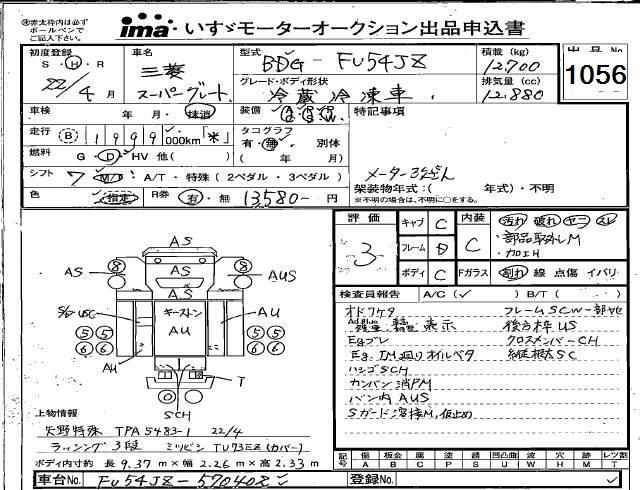 ※赤太枠内は必ずボールペンでご記入下さい。
ima いすゞモーターオークション出品申込書
初度登録 S・H・R 22/4 月
車名 三菱 スーパーグレート
型式 BDG - FU54JZ
積載 (kg) 12,700
出品No. 1056
グレード・ボディ形状 冷蔵冷凍車
排気量 (cc) 12,880
車検 年 月・抹消
装備
特記事項
走行 B 1999 000km「米」
タコグラフ 有・無・別体 ( 年 月)
燃料 G・D・HV 他( )
メーター3年ざん
シフト 7 M/T・A/T・特殊(2ペダル・3ペダル)
架装物年式:( 年式)・不明
※不明の場合は、不明に○をする。
色 指定 R券 有・無 13,580- 円
評価 3
キャブ C
フレーム D
ボディ C
内装 C
汚れ 破れ ヤニ スレ
・部品取外しM
・加工H
Fガラス 割れ 線 点傷 イバリ
検査員報告 A/C(✓) B/T( )
AS
8 8
AS AS AUS
S/G USC キーストン AU AU
5 5 5 5
6 6 6 6
AU
T
SCH
フレームSCW-部ヤセ
表示 後方枠US
Egブレ クロスメンバーCH
Eg.TM廻りオイルベタ 縦根太SC
ハシゴSCH
カンバン消PM
バン内AUS
Sガード溶接M,仮止め
上物情報
矢野特殊 TPA5483-1 22/4
ラッシング3段 ミツビシ TU73EZ(カバー)
ボディ内寸約 長 9.37 m×幅 2.26 m×高 2.33 m
記号 傷 A 板金 B 腐 C 補 P 錆 S 凹凸曲 U 鈑 W 穴 H 欠 M レツ割 T
車台No. FU54JZ-570408
登録No.